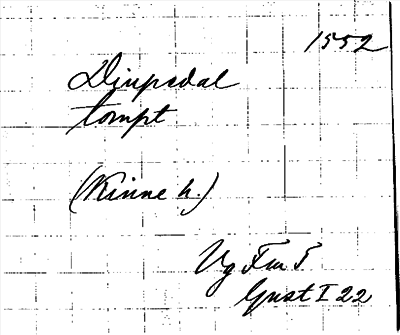 1552
Djupsdal
tompt
(Kinne h.)
Vg Fm 5
Gust I 22